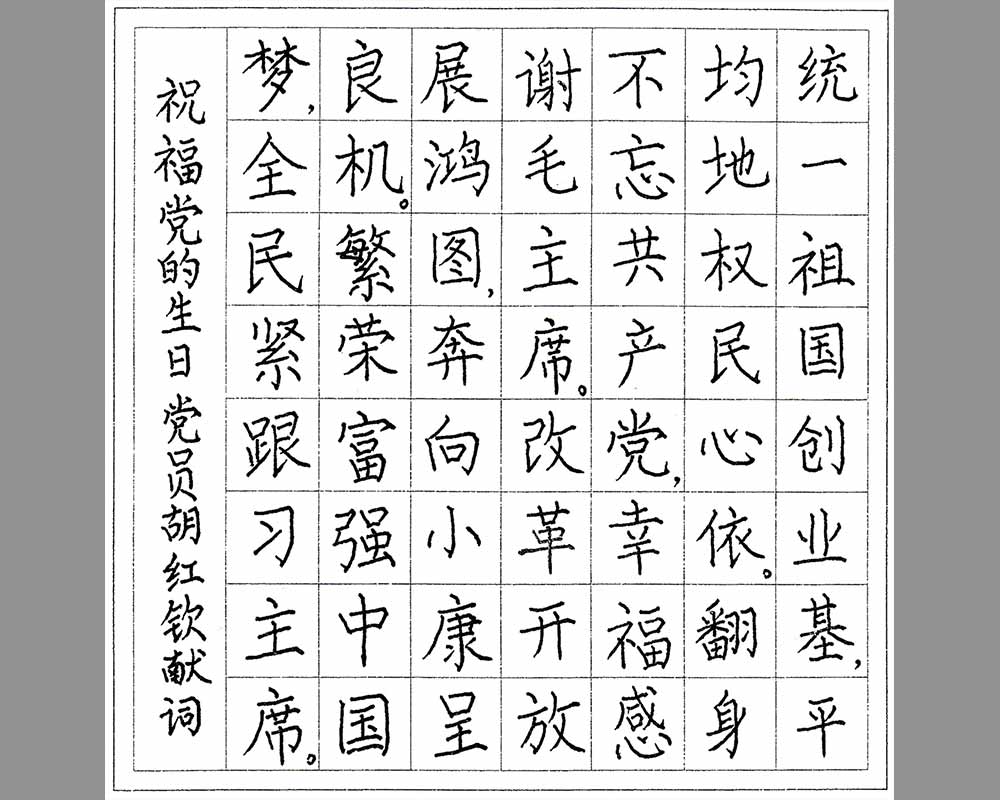 统一祖国创业基,平
均地权民心依。翻身
不忘共产党,幸福感
谢毛主席。改革开放
展鸿图,奔向小康呈
良机。繁荣富强中国
梦,全民紧跟习主席。
祝福党的生日 党员胡红钦献词